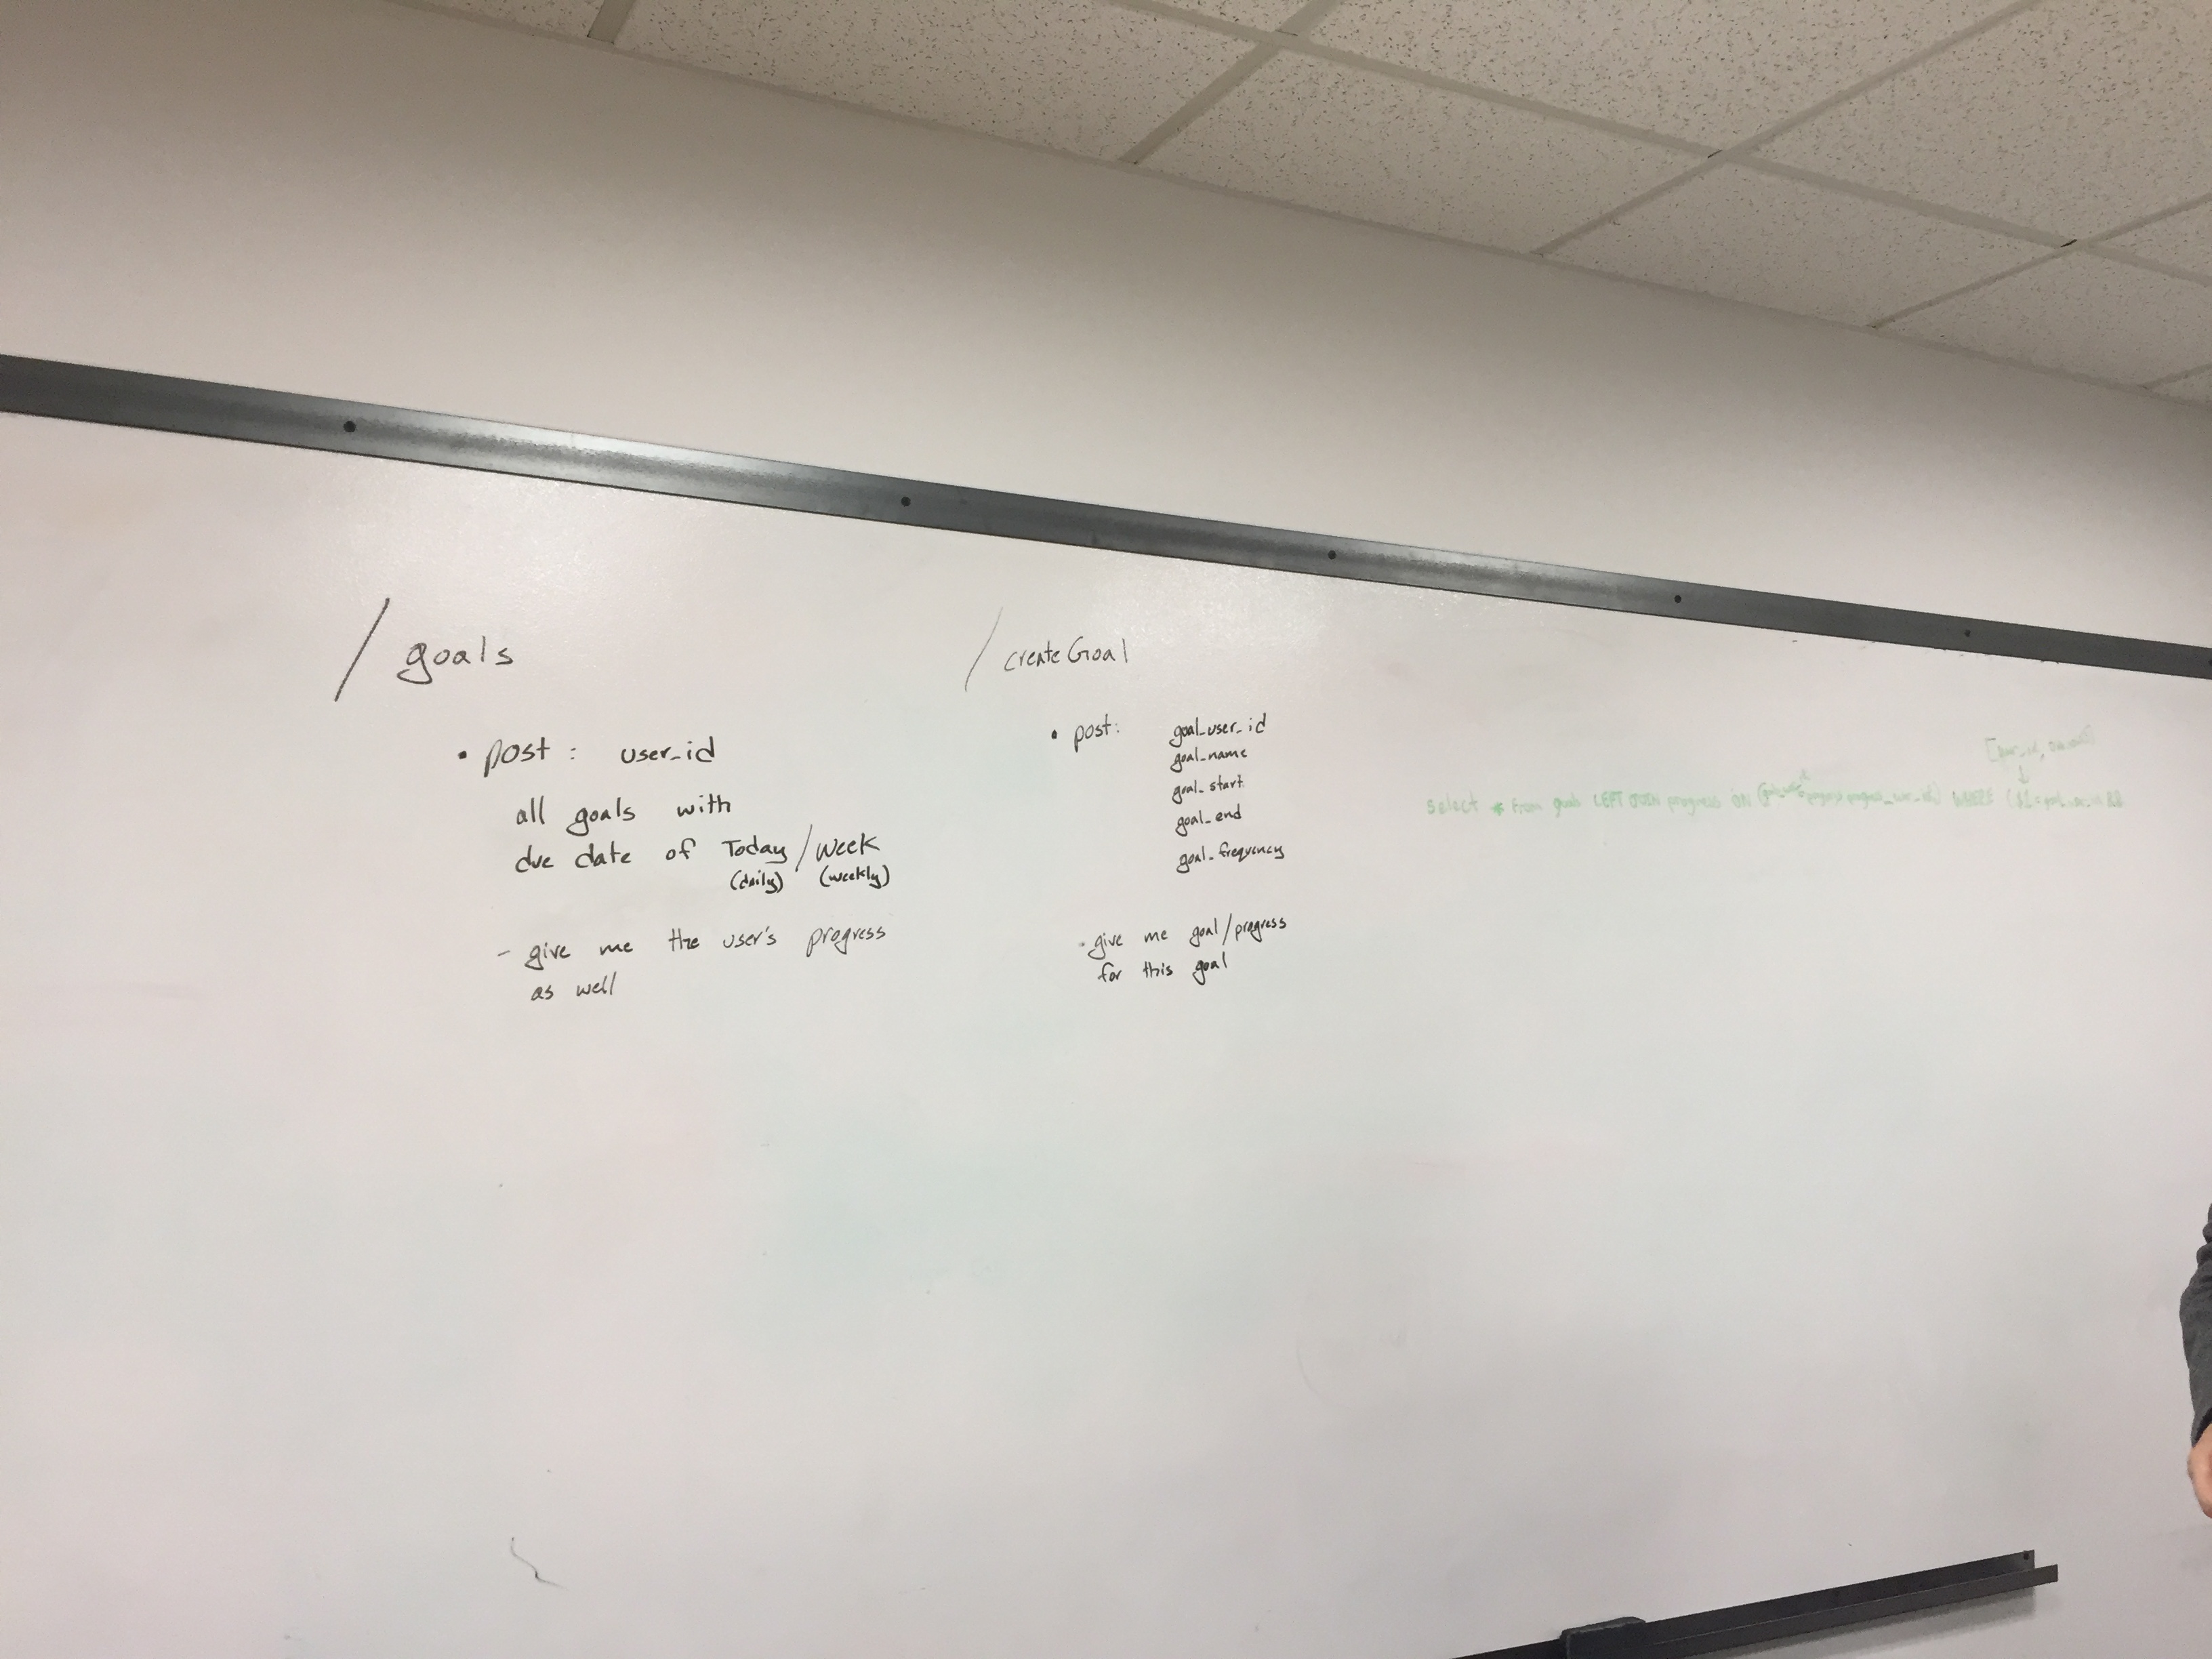 / goals
• post : user_id
all goals with
due date of Today / Week
(daily) (weekly)
- give me the user's progress
as well
/ createGoal
• post: goal_user_id
goal_name
goal_start
goal_end
goal_frequency
- give me goal/progress
for this goal
select * from goals LEFT JOIN progress ON WHERE